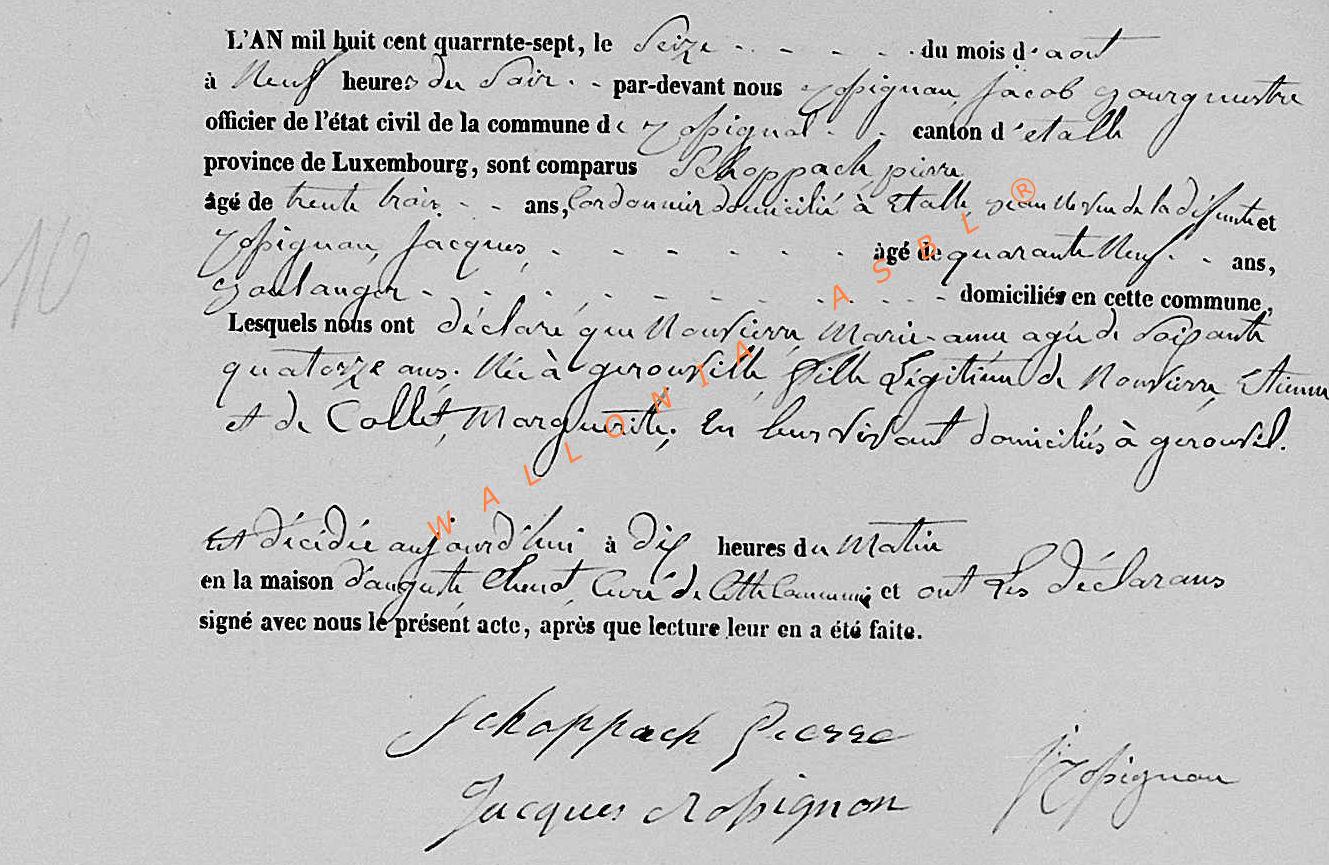 10
L'AN mil huit cent quarrnte-sept, le Seize - - - - . du mois d'aout
à Neuf heures du Soir - - par-devant nous Rossignon, Jacob Bourgmestre
officier de l'état civil de la commune de Rossignol - - canton d'etalle
province de Luxembourg, sont comparus Schoppach, pierre
âgé de trente trois - - ans, Cordonnier domicilié à Etalle, de la défunte et
Rossignon, Jacques, - - - - - - - âgé de quarante Neuf - - ans,
Boulanger - - - - - - - - - - domiciliés en cette commune,
Lesquels nous ont déclaré que Marie-anne agée de Soixante
quatorze ans. Née à gerouville, fille Légitime de Etienne
et de Collet, Marguerite, En leur vivant domiciliés à gerouvil.
Est décédée aujourd'hui à dix heures du Matin
en la maison d'auguste, Curé de Cette Commune et ont Les déclarans
signé avec nous le présent acte, après que lecture leur en a été faite.
Schoppach Pierre
Jacques Rossignon
J. Rossignon
WALLONIA ASBL ®